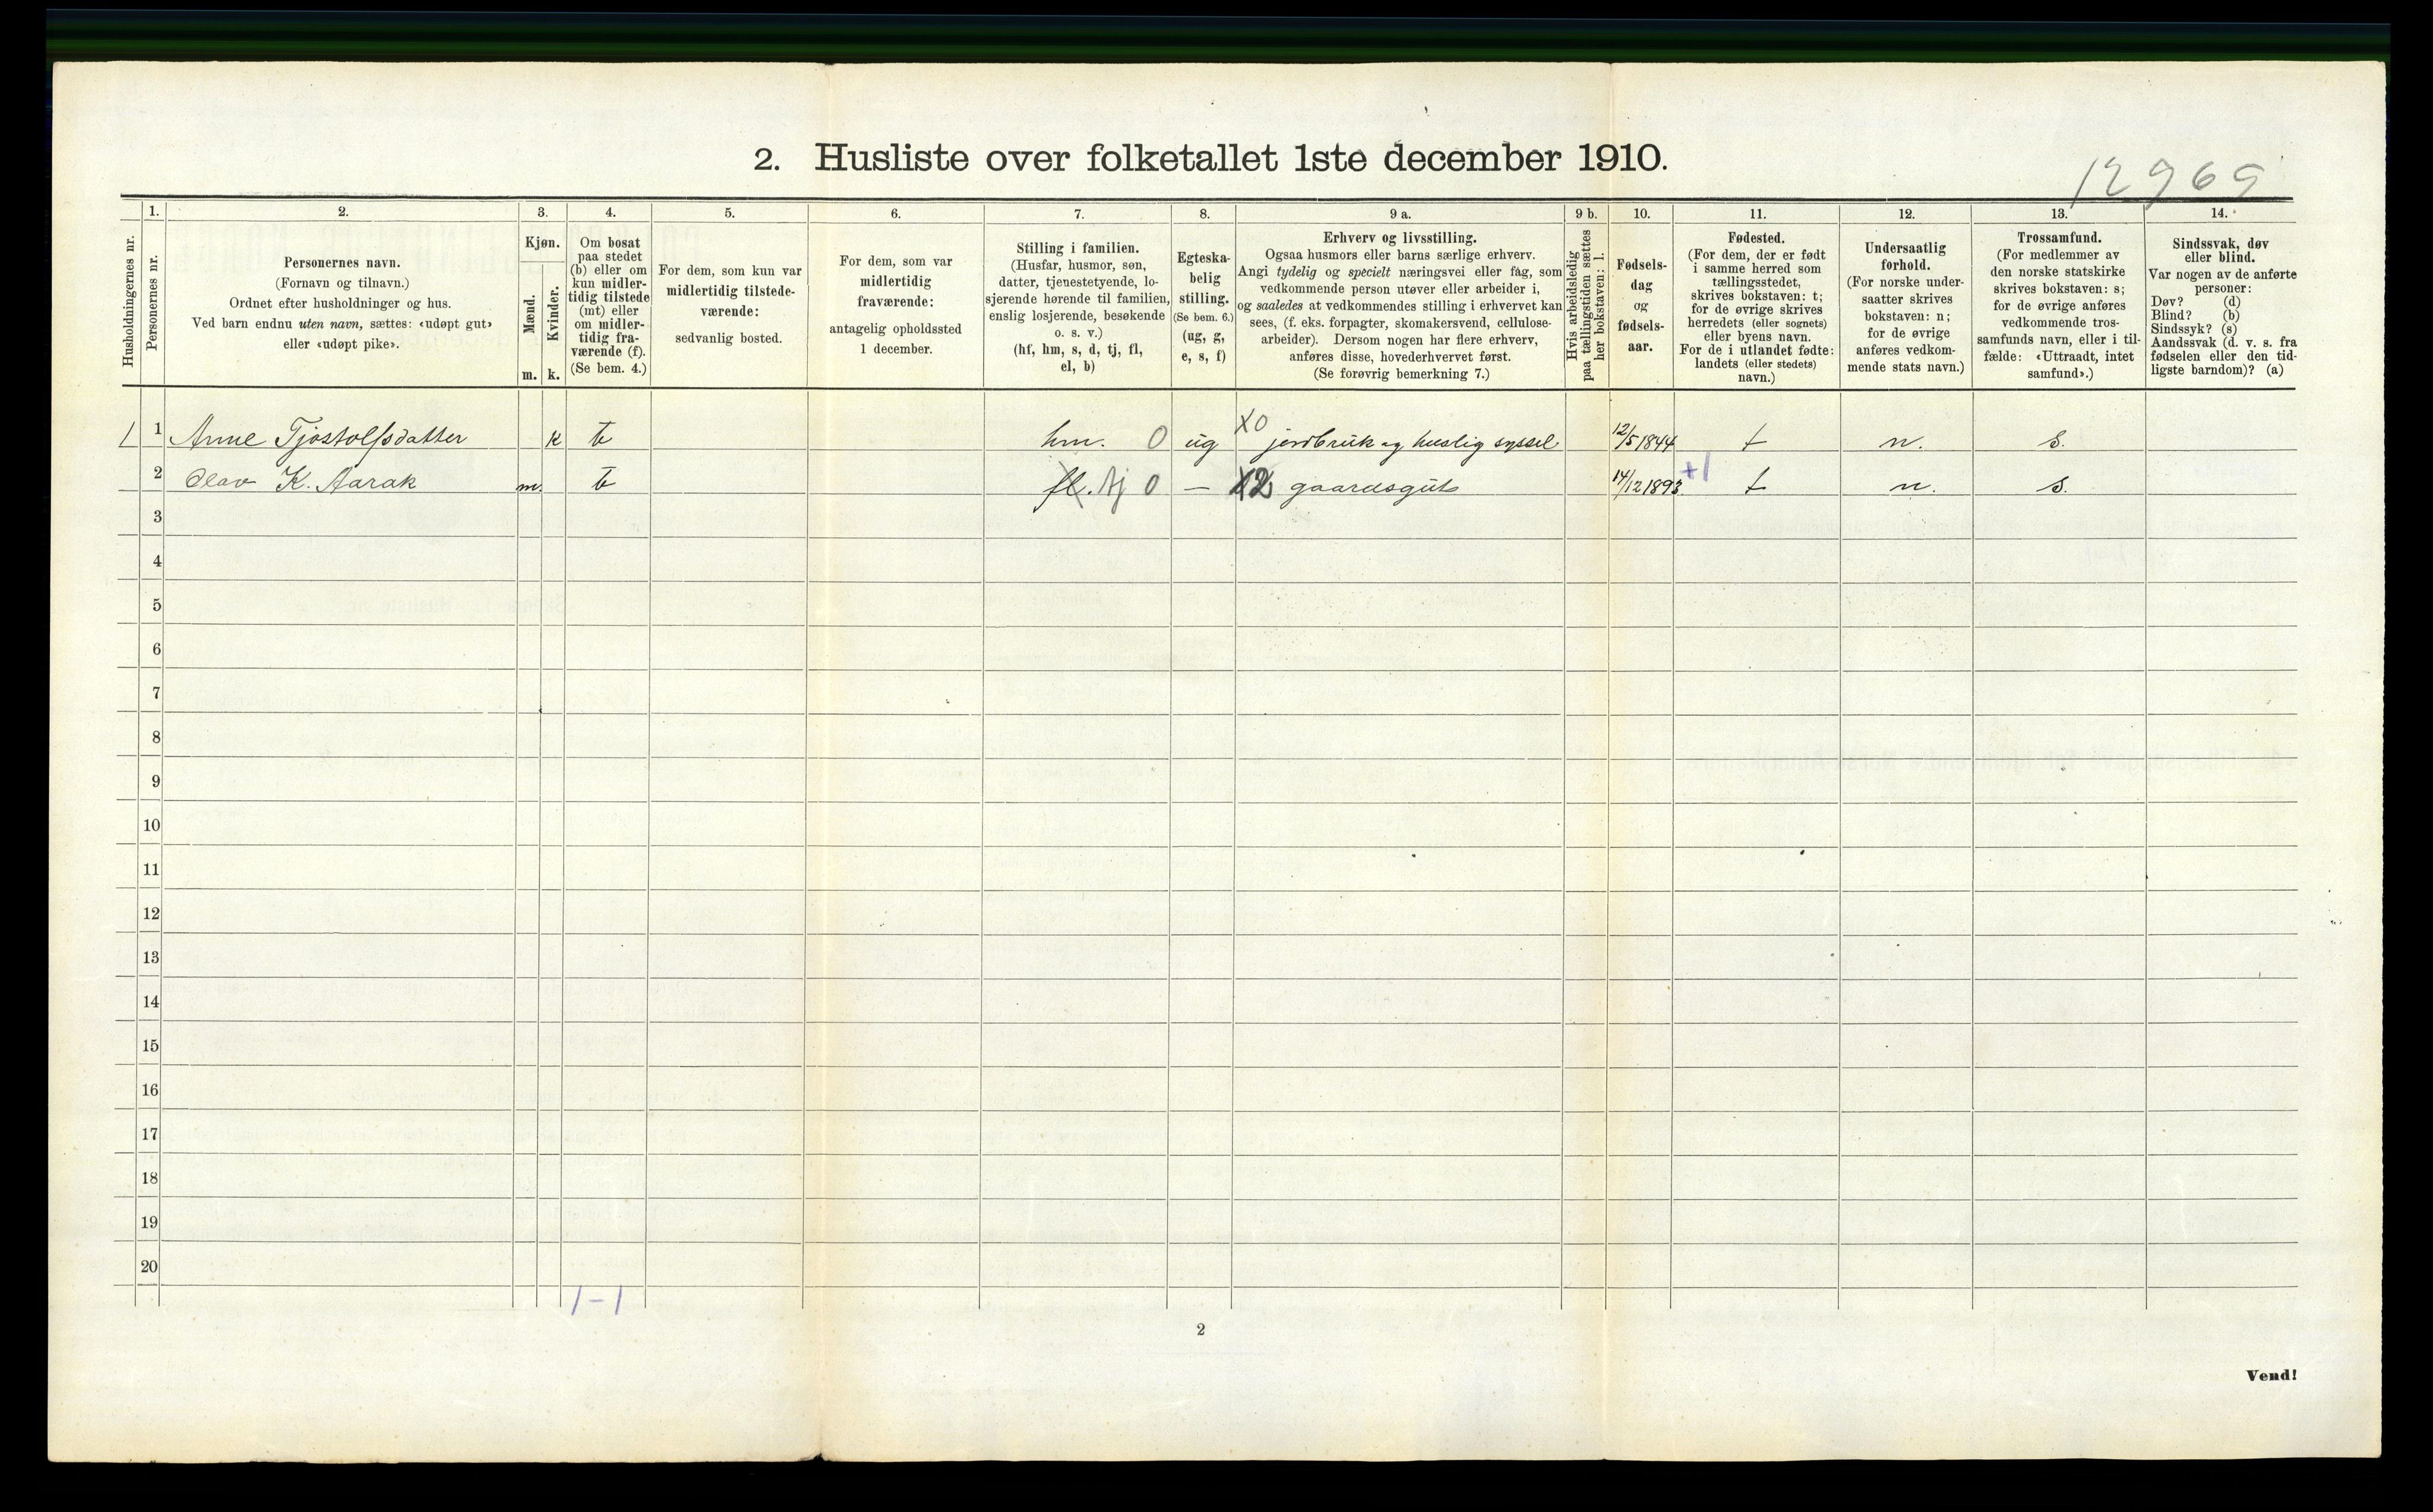 2. Husliste over folketallet 1ste december 1910.
12969
Husholdningernes nr.
1.
Personernes nr.
2.
Personernes navn.
(Fornavn og tilnavn.)
Ordnet efter husholdninger og hus.
Ved barn endnu uten navn, sættes: «udøpt gut»
eller «udøpt pike».
3.
Kjøn.
Mænd.
Kvinder.
m. k.
4.
Om bosat
paa stedet
(b) eller om
kun midler-
tidig tilstede
(mt) eller
om midler-
tidig fra-
værende (f).
(Se bem. 4.)
5.
For dem, som kun var
midlertidig tilstede-
værende:
sedvanlig bosted.
6.
For dem, som var
midlertidig
fraværende:
antagelig opholdssted
1 december.
7.
Stilling i familien.
(Husfar, husmor, søn,
datter, tjenestetyende, lo-
sjerende hørende til familien,
enslig losjerende, besøkende
o. s. v.)
(hf, hm, s, d, tj, fl,
el, b)
8.
Egteska-
belig
stilling.
(Se bem. 6.)
(ug, g,
e, s, f)
9 a.
Erhverv og livsstilling.
Ogsaa husmors eller barns særlige erhverv.
Angi tydelig og specielt næringsvei eller fag, som
vedkommende person utøver eller arbeider i,
og saaledes at vedkommendes stilling i erhvervet kan
sees, (f. eks. forpagter, skomakersvend, cellulose-
arbeider). Dersom nogen har flere erhverv,
anføres disse, hovederhvervet først.
(Se forøvrig bemerkning 7.)
9 b.
Hvis arbeidsledig
paa tællingstiden sættes
her bokstaven: l.
10.
Fødsels-
dag
og
fødsels-
aar.
11.
Fødested.
(For dem, der er født
i samme herred som
tællingsstedet,
skrives bokstaven: t;
for de øvrige skrives
herredets (eller sognets)
eller byens navn.
For de i utlandet fødte:
landets (eller stedets)
navn.)
12.
Undersaatlig
forhold.
(For norske under-
saatter skrives
bokstaven: n;
for de øvrige
anføres vedkom-
mende stats navn.)
13.
Trossamfund.
(For medlemmer av
den norske statskirke
skrives bokstaven: s;
for de øvrige anføres
vedkommende tros-
samfunds navn, eller i til-
fælde: «Uttraadt, intet
samfund».)
14.
Sindssvak, døv
eller blind.
Var nogen av de anførte
personer:
Døv? (d)
Blind? (b)
Sindssyk? (s)
Aandssvak (d. v. s. fra
fødselen eller den tid-
ligste barndom)? (a)
1 1 Anne Tjostolfsdatter k b hm. 0 ug X0 jordbruk og huslig syssel 12/5 1844 t n. s.
2 Olav K. Aarak m. b fl. tj 0 — X2 gaardsgut 14/12 1893 +1 t n. s.
3
4
5
6
7
8
9
10
11
12
13
14
15
16
17
18
19
20
1-1
2
Vend!